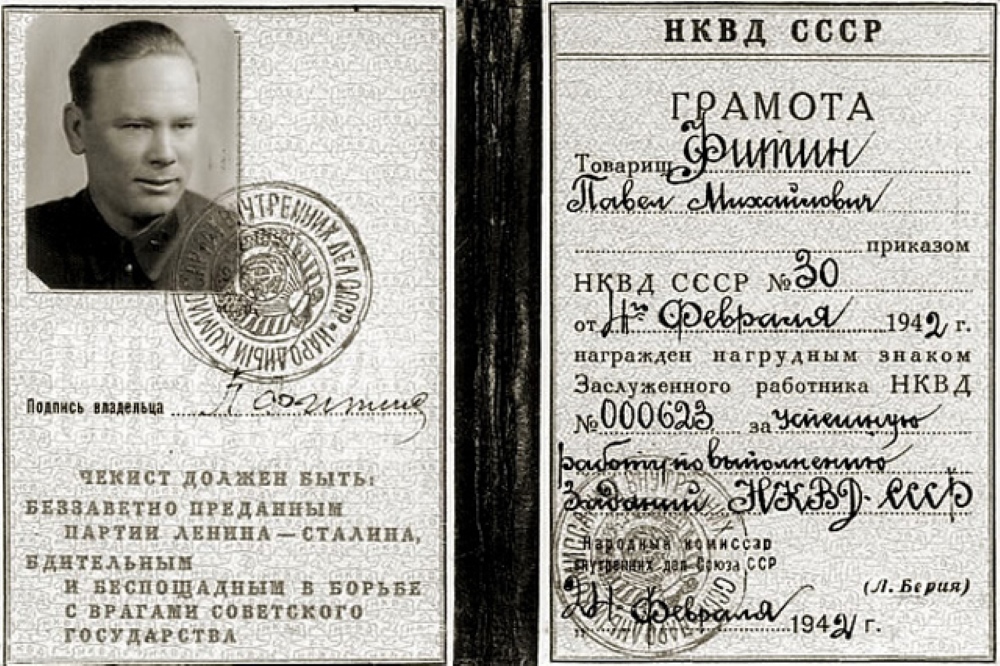 НАРОДНЫЙ КОМИССАРИАТ ВНУТРЕННИХ ДЕЛ СССР
Подпись владельца П Фитин
ЧЕКИСТ ДОЛЖЕН БЫТЬ:
БЕЗЗАВЕТНО ПРЕДАННЫМ
ПАРТИИ ЛЕНИНА—СТАЛИНА,
БДИТЕЛЬНЫМ
И БЕСПОЩАДНЫМ В БОРЬБЕ
С ВРАГАМИ СОВЕТСКОГО
ГОСУДАРСТВА
НКВД СССР
ГРАМОТА
Товарищ Фитин
Павел Михайлович
приказом
НКВД СССР №30
от Февраля 1942 г.
награжден нагрудным знаком
Заслуженного работника НКВД
№000623 за успешную
работу по выполнению
заданий НКВД-СССР
Народный комиссар
внутренних дел Союза ССР
(Л. Берия)
Февраля 1942 г.